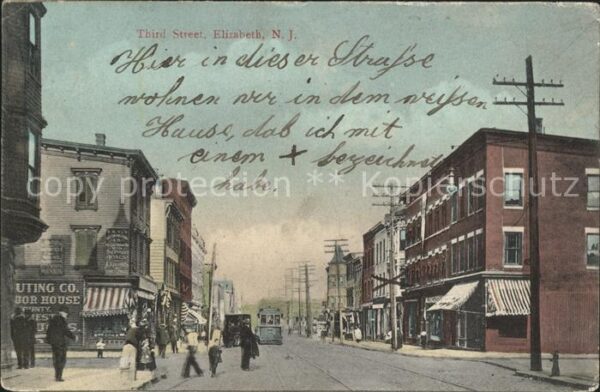 Third Street, Elizabeth, N. J.
Hier in dieser Straſse
wohnen wir in dem weiſsen
Hause, daß ich mit
einem + bezeichnet
habe.
copy protection * ** * Kopierschutz
UTING CO.
BOR HOUSE